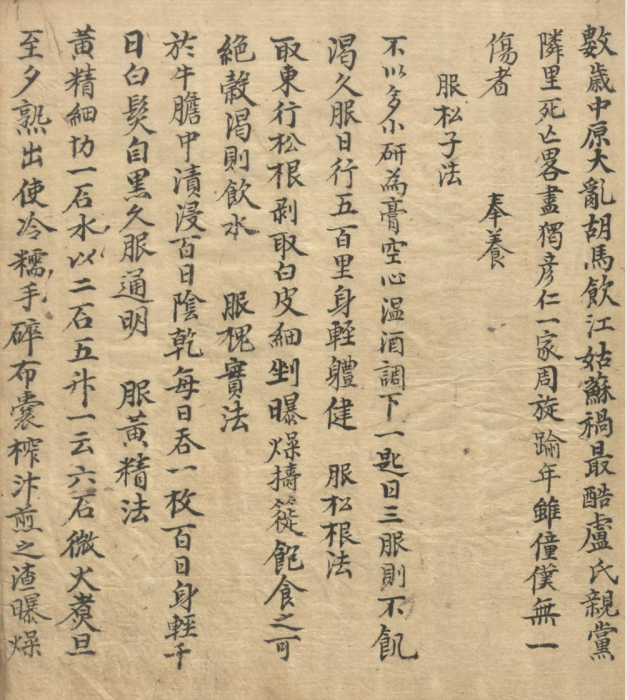 數歲中原大亂胡馬飲江姑蘇禍最酷盧氏親黨
隣里死亡畧盡獨彦仁一家周旋踰年雖僮僕無一
傷者 奉養
服松子法
不以多小研為膏空心温酒調下一匙日三服則不飢
渴久服日行五百里身輕軆健 服松根法
取東行松根剥取白皮細剉曝燥擣篵飽食之可
絶穀渴則飲水 服槐實法
於牛膽中漬浸百日陰乾每日吞一枚百日身輕千
日白髮自黑久服通明 服黃精法
黃精細切一石水以二石五升一云六石微火煑旦
至夕熟出使冷糯手碎布囊榨汁煎之渣曝燥